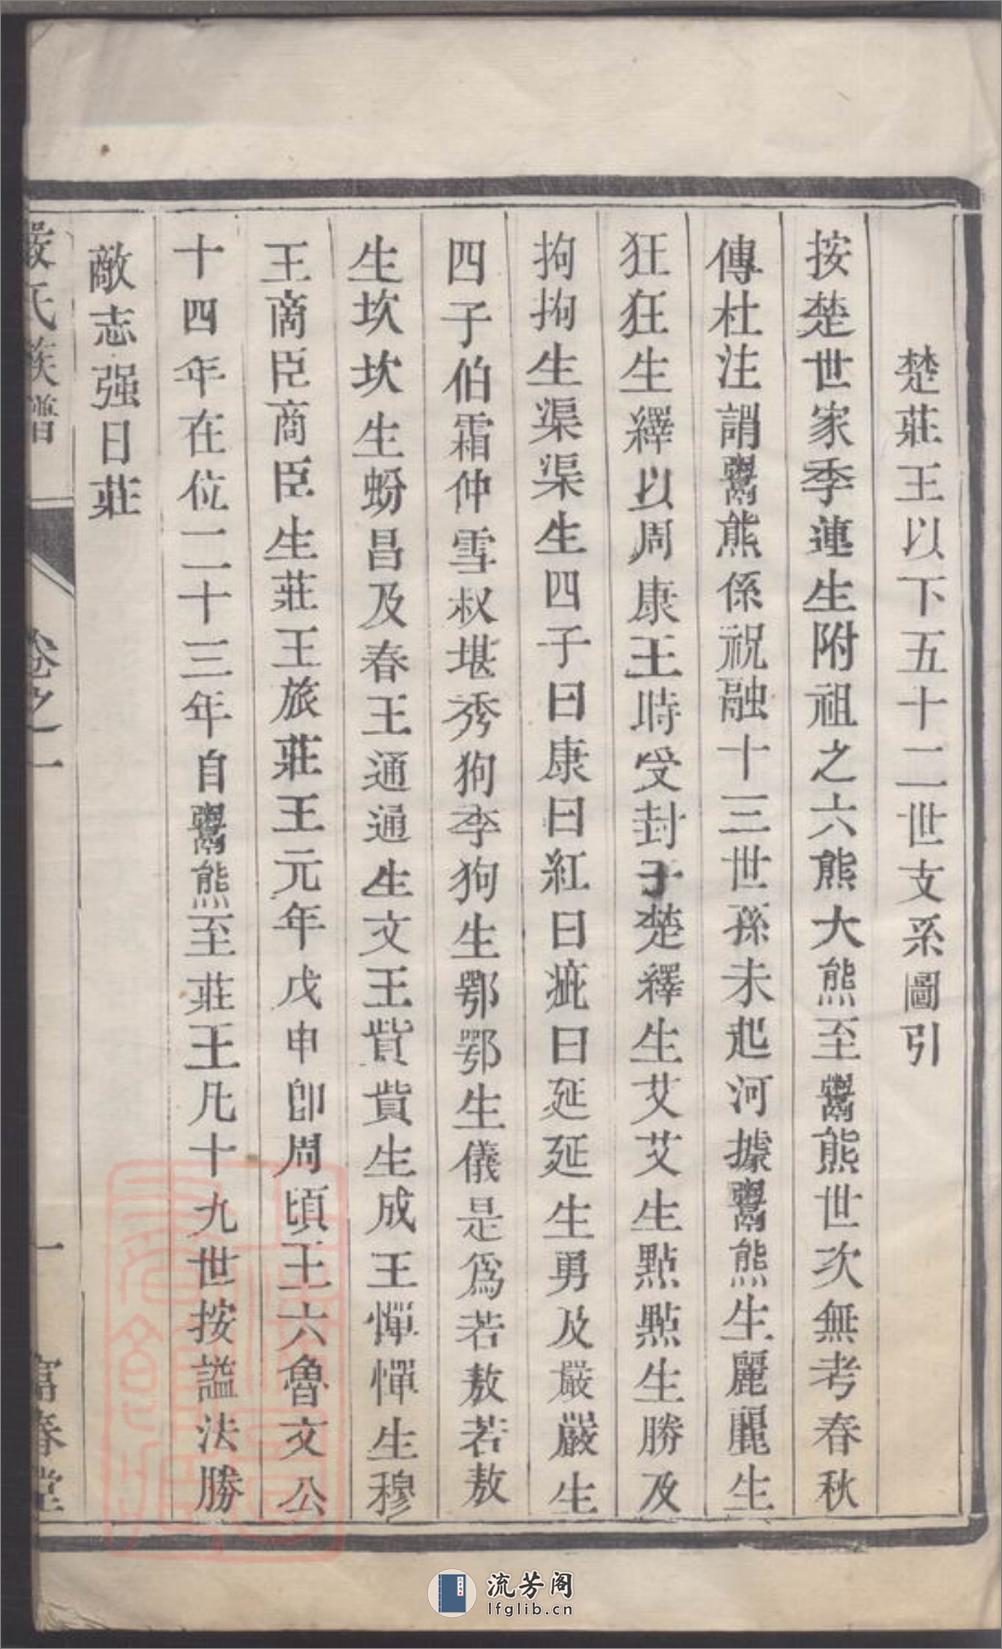 楚莊王以下五十二世支系圖引
按楚世家季連生附祖之六熊大熊至鬻熊世次無考春秋
傳杜注謂鬻熊係祝融十三世孫未起河據鬻熊生麗麗生
狂狂生繹以周康王時受封于楚繹生艾艾生點點生勝及
拘拘生渠渠生四子曰康曰紅曰疵曰延延生勇及嚴嚴生
四子伯霜仲雪叔堪季狗季狗生鄂鄂生儀是為若敖若敖
生坎坎生蚡昌及春王通通生文王貲貲生成王惲惲生穆
王商臣商臣生莊王旅莊王元年戊申即周頃王六魯文公
十四年在位二十三年自鬻熊至莊王凡十九世按謚法勝
敵志强曰莊
嚴氏族譜 卷之一 一 富春堂
流芳阁
lfglib.cn